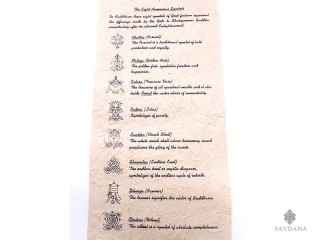 The Eight Auspicious Symbols
In Buddhism these eight symbols of Good fortune represent
the offerings made by the Gods to Shakyamuni Buddha
immediately after he attained Enlightenment.
Chattra (Parasol)
The Parasol is a traditional symbol of both
protection and royalty.
Matsya (Golden Fish)
The golden fish, symbolize freedom and
happiness.
Kalasa (Treasure Vase)
The treasure of all spiritual wealth and it also
holds Amrit the water elixir of immortality
Padma (Lotus)
Symbolizes of purity.
Shankha (Conch Shell)
The white conch shell whose booming sound
proclaims the glory of the saints.
Shrivatsa (Endless Knot)
The endless knot or mystic diagram,
symbolizes of the endless cycle of rebirth.
Dhvaja (Banner)
The banner signifies the victor of Buddhism.
Chakra (Wheel)
The wheel is a symbol of absolute completeness.
SAVDANA